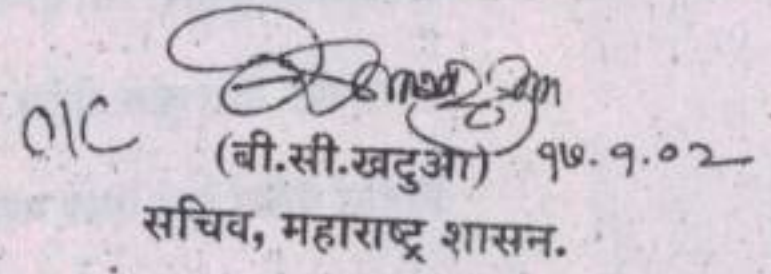 O/C
(बी.सी.खदुआ) १७.१.०२
सचिव, महाराष्ट्र शासन.